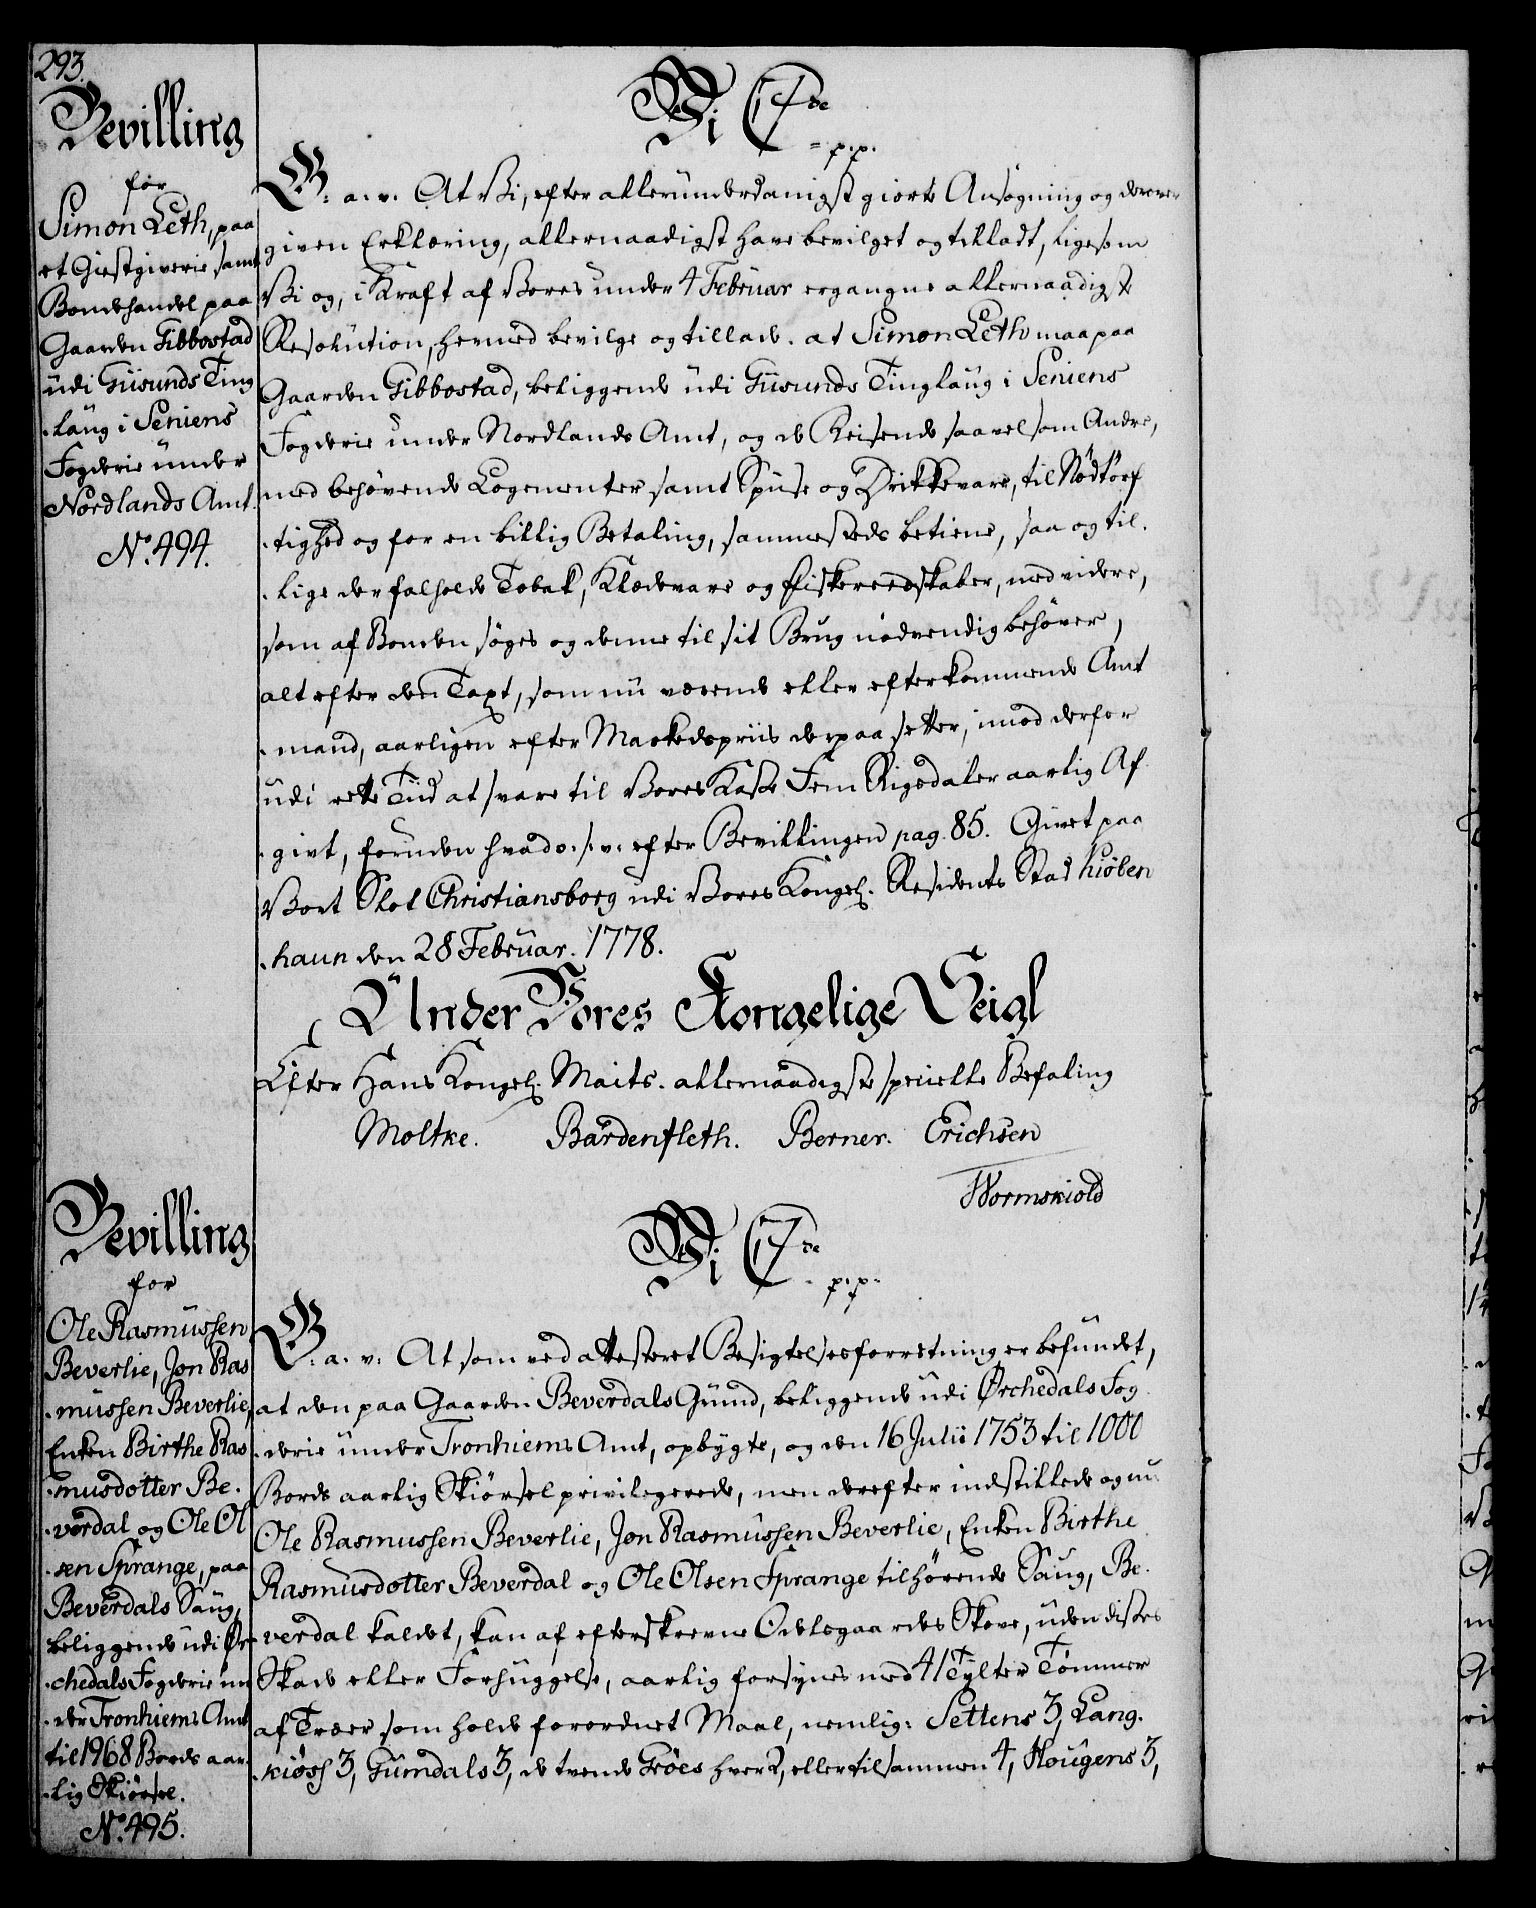 293.
Bevilling
for
Simon Leth, paa
et Giestgiverie samt
Bondehandel paa
Gaarden Gibbostad
udi Giisunds Ting
-laug i Seniens
Fogderie under
Nordlands Amt.
No. 494.
Vi C 7de
p. p.
G: a. v. At Vi, efter allerunderdanigst giorte Ansøgning og derover
given Erklæring, allernaadigst have bevilget og tilladt, ligesom
Vi og, i Kraft af Vores under 4 Februar ergangne allernaadigste
Resolution, hermed bevilge og tillade. at Simon Leth maa paa
Gaarden Gibbostad, beliggende udi Giisunds Tinglaug i Seniens
Fogderie under Nordlands Amt, og de Reisende saavel som Andre,
med behøvende Logementer samt Spiise og Drikkevare, til Nödtörf
-tighed og for en billig Betaling, sammesteds betiene, saa og til-
-lige der falholde Tobak, Klædevare og Fiskereedskaber, med videre,
som af Bonden söges og denne til sit Brug nödvendig behøver,
alt efter den Taxt, som nu værende eller efterkommende Amt
-mand, aarligen efter Markedspriis derpaa setter, imod derfor
udi rette Tiid at svare til Vores Kasse Fem Rigsdaler aarlig Af
-givt, foruden hvad o. s. v. efter Bevillingen pag. 85. Givet paa
Vort Slot Christiansborg udi Vores Kongel. Residents Stad Kiöben
-haun den 28 Februar. 1778.
Under Vores Kongelige Seigl
Efter Hans Kongel. Maits. allernaadigste specielle Befaling
Moltke. Bardenfleth. Berner. Erichsen
Wormskiold
Bevilling
for
Ole Rasmussen
Beverlie, Jon Ras
-mussen Beverlie,
Enken Birthe Ras
-musdotter Be-
-verdal og Ole Ol
-sen Sprange, paa
Beverdals Saug,
beliggende udi Ør
-chedals Fogderie un
-der Tronhiems Amt
til 1968 Bords aar-
-lig Skiörsel.
No. 495.
Vi C 7de
p. p.
G: a. v: At som ved attesteret Besigtelsesforretning er befundet,
at den paa Gaarden Beverdals Grund, beliggende udi Ørchedals Fog-
-derie under Tronhiems Amt, opbygte, og den 16 Julii 1753 til 1000
Bords aarlig Skiörsel privilegerede, men derefter indstillede og nu
Ole Rasmussen Beverlie, Jon Rasmussen Beverlie, Enken Birthe
Rasmusdotter Beverdal og Ole Olsen Sprange tilhørende Saug, Be-
verdal kaldet, kan af efterskrevne Odelsgaardes Skove, uden disses
Skade eller Forhuggelse, aarlig forsynes med 41 Tylter Tömmer
af Træer som holde forordnet Maal, nemlig: Settens 3, Lang-
-kiøss 3, Gumdals 3, de tvende Gröes hver 2, eller tilsammen 4, Hougens 3,